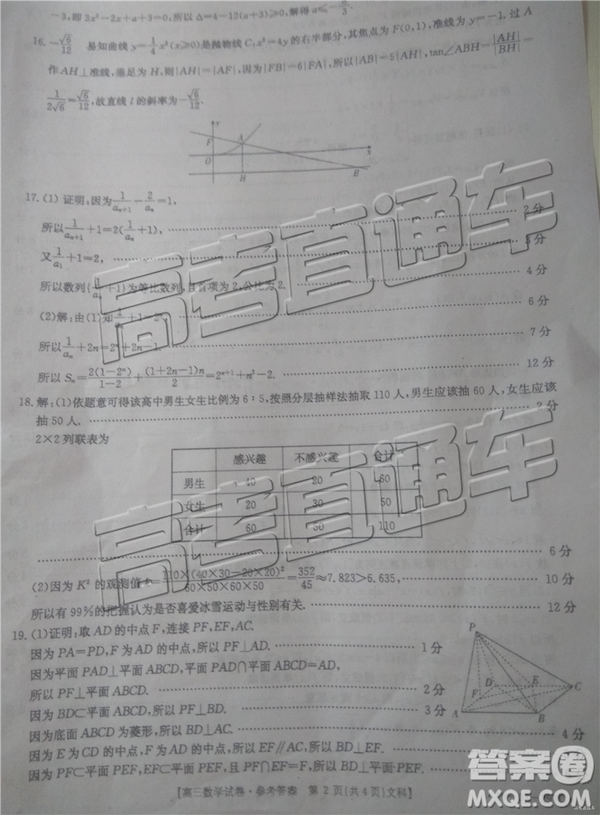 -3,即3x²-2x+a+3=0,所以Δ=4-12(a+3)≥0,解得a≤-
16. -√6/12 易知曲线y=1/4x²(x≥0)是抛物线C:x²=4y的右半部分,其焦点为F(0,1),准线为y=-1,过A
作AH⊥准线,垂足为H,则|AH|=|AF|,因为|FB|=6|FA|,所以|AB|=5|AH|,tan∠ABH=|AH|/|BH|=
1/2√6=√6/12,故直线l的斜率为-√6/12.
y
F
A
O
x
H
B
17.(1)证明:因为1/aₙ₊₁-2/aₙ=1,
所以1/aₙ₊₁+1=2(1/aₙ+1), 2分
又1/a₁+1=2, 3分
所以数列{1/aₙ+1}为等比数列,且首项为2,公比为2. 4分
(2)解:由(1)知1/aₙ+1= 6分
1/aₙ+2n=2ⁿ+2n-1. 7分
所以Sₙ=2(1-2ⁿ)/(1-2)+(1+2n-1)n/2=2ⁿ⁺¹+n²-2. 12分
18.解:(1)依题意可得该高中男生女生比例为6:5,按照分层抽样法抽取110人,男生应该抽60人,女生应该
抽50人. 2分
2×2列联表为
感兴趣 不感兴趣 合计
男生 40 20 60
女生 20 30 50
合计 60 50 110
6分
(2)因为K²的观测值k=110×(40×30-20×20)²/ =352/45≈7.823>6.635, 10分
所以有99%的把握认为是否喜爱冰雪运动与性别有关. 12分
19.(1)证明:取AD的中点F,连接PF,EF,AC.
因为PA=PD,F为AD的中点,所以PF⊥AD. 1分
因为平面PAD⊥平面ABCD,平面PAD∩平面ABCD=AD,
所以PF⊥平面ABCD. 2分
因为BD⊂平面ABCD,所以PF⊥BD. 3分
因为底面ABCD为菱形,所以BD⊥AC. 4分
因为E为CD的中点,F为AD的中点,所以EF∥AC,所以BD⊥EF.
因为PF⊂平面PEF,EF⊂平面PEF,且PF∩EF=F,所以BD⊥平面PEF.
P
D
E
C
F
A
B
【高三数学试卷·参考答案 第2页(共4页)文科】
高考直通车
高考直通车
答案圈